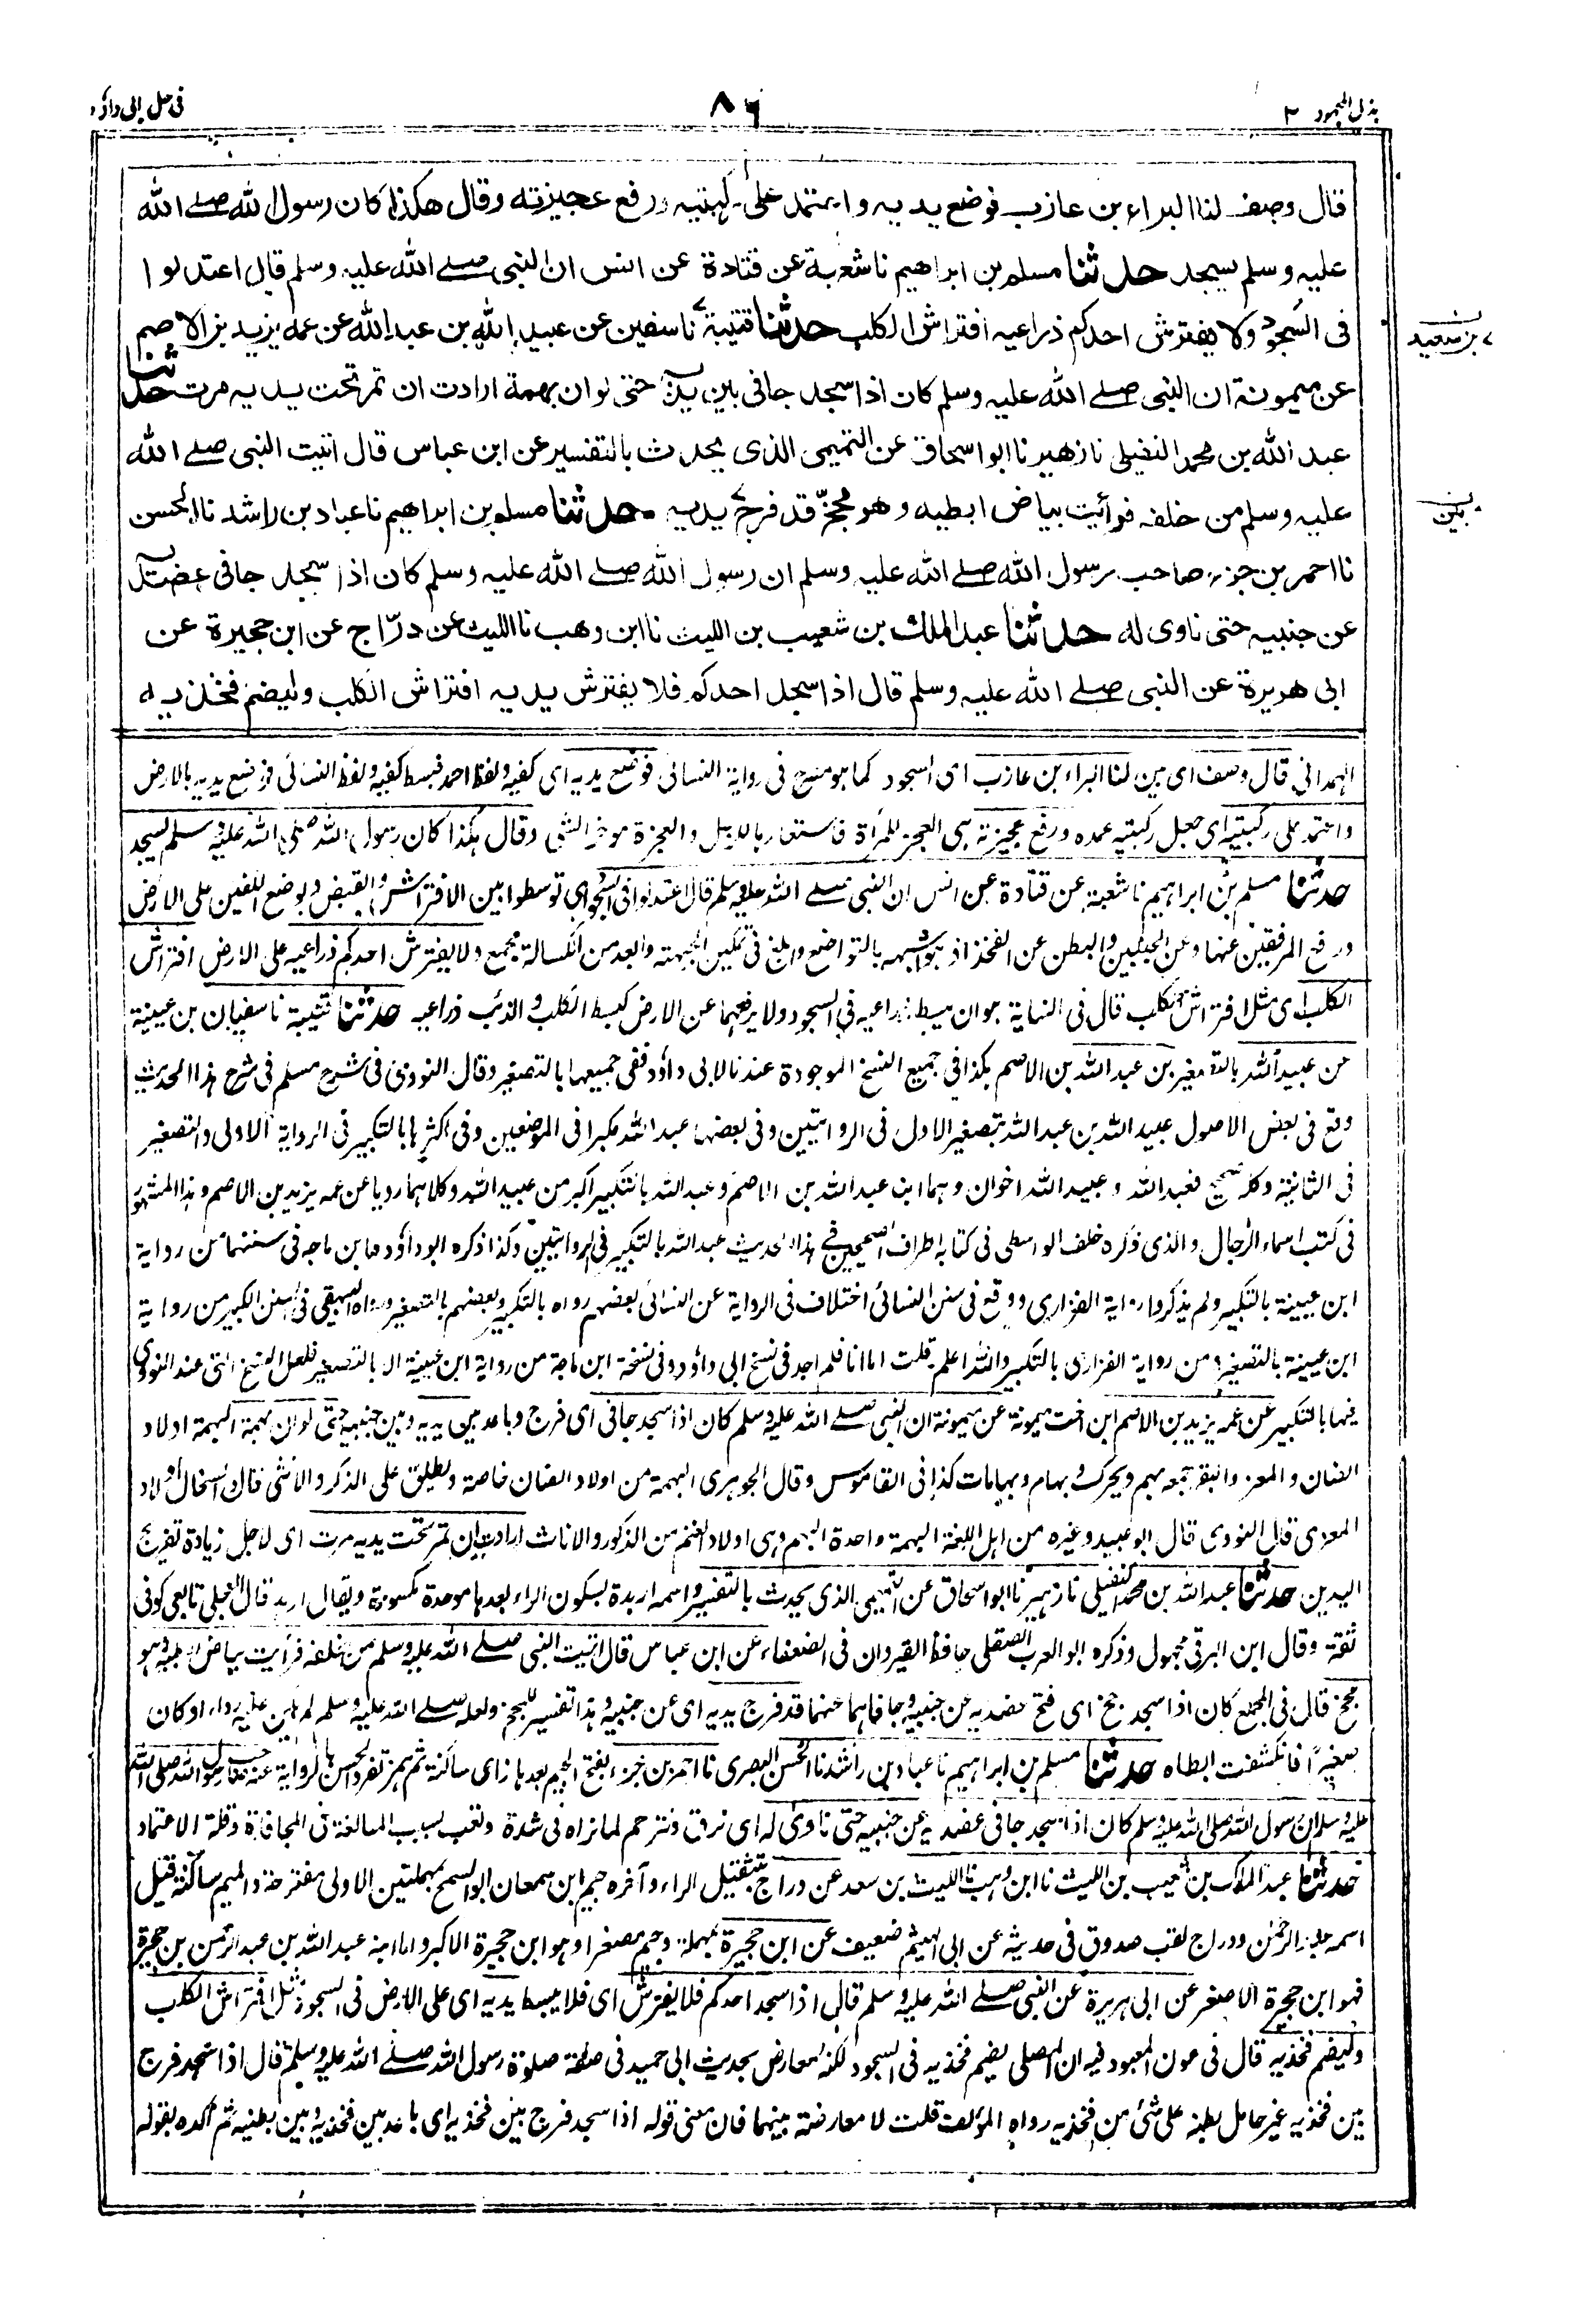 بذل المجهود ٢
٨٦
فى حل ابى داؤد
قال وصف لنا البراء بن عازب فوضع يديه واعتمد على ركبتيه ورفع عجيزته وقال هكذا كان رسول الله صلے الله
عليه وسلم يسجد حدثنا مسلم بن ابراهيم نا شعبة عن قتادة عن انس ان النبى صلے الله عليه وسلم قال اعتدلوا
فى السجود ولا يفترش احدكم ذراعيه افتراش الكلب حدثنا قتيبة نا سفين عن عبيد الله بن عبد الله عن عمه يزيد بن الاصم
بن سعيد
عن ميمونة ان النبى صلے الله عليه وسلم كان اذا سجد جافى بين يديه حتى لو ان بهمة ارادت ان تمر تحت يديه مرت حدثنا
عبد الله بن محمد النفيلى نا زهير نا ابو اسحاق عن التميمى الذى يحدث بالتفسير عن ابن عباس قال اتيت النبى صلے الله
عليه وسلم من خلفه فرأيت بياض ابطيه وهو مجخّ قد فرج يديه حدثنا مسلم بن ابراهيم نا عباد بن راشد نا الحسن
بين
نا احمر بن جزء صاحب رسول الله صلے الله عليه وسلم ان رسول الله صلے الله عليه وسلم كان اذا سجد جافى عضديه
عن جنبيه حتى ناوى له حدثنا عبد الملك بن شعيب بن الليث نا ابن وهب نا الليث عن درّاج عن ابن حجيرة عن
ابى هريرة عن النبى صلے الله عليه وسلم قال اذا سجد احدكم فلا يفترش يديه افتراش الكلب وليضم فخذيه
الهمدانى قال وصف اى بين لنا البراء بن عازب اى السجود كما هو مصرح فى رواية النسائى فوضع يديه اى كفيه ولفظ احمد فبسط كفيه ولفظ النسائى فوضع يديه بالارض
واعتمد على ركبتيه اى جعل ركبتيه عمده ورفع عجيزته هى العجز للمرأة فاستعار بالرجل والعجزة موخر الشئى وقال هكذا كان رسول الله صلى الله عليه وسلم يسجد
حدثنا مسلم بن ابراهيم نا شعبة عن قتادة عن انس ان النبى صلے الله عليه وسلم قال اعتدلوا فى السجود اى توسطوا بين الافتراش والقبض وبوضع الكفين على الارض
ورفع المرفقين عنها وعن الجنبين والبطن عن الفخذ اذ هو اشبه بالتواضع وابلغ فى تمكين الجبهة وابعد من الكسالة مجمع ولا يفترش احدكم ذراعيه على الارض افتراش
الكلب اى مثل افتراش الكلب قال فى النهاية هو ان يبسط ذراعيه فى السجود ولا يرفعهما عن الارض كبسط الكلب والذئب ذراعيه حدثنا قتيبة نا سفيان بن عيينة
عن عبيد الله بالتصغير بن عبد الله بن الاصم هكذا فى جميع النسخ الموجودة عندنا لابى داؤد ففى جميعها بالتصغير وقال النووى فى شرح مسلم فى شرح هذا الحديث
وقع فى بعض الاصول عبيد الله بن عبد الله بتصغير الاول فى الروايتين وفى بعضها عبد الله مكبرا فى الموضعين وفى اكثرها بالتكبير فى الرواية الاولى والتصغير
فى الثانية وكله صحيح فعبد الله وعبيد الله اخوان وهما ابنا عبد الله بن الاصم وعبد الله بالتكبير اكبر من عبيد الله وكلاهما رويا عن عمه يزيد بن الاصم وهذا المشهور
فى كتب اسماء الرجال والذى ذكره خلف الواسطى فى كتابه اطراف الصحيحين فى هذا الحديث عبد الله بالتكبير فى الروايتين وكذا ذكره ابو داؤد وابن ماجه فى سننهما من رواية
ابن عيينة بالتكبير ولم يذكروا رواية الفزارى ووقع فى سنن النسائى اختلاف فى الرواية عن النسائى بعضهم رواه بالتكبير وبعضهم بالتصغير ورواه البيهقى فى السنن الكبير من رواية
ابن عيينة بالتصغير ومن رواية الفزارى بالتكبير والله اعلم قلت اما انا فلم اجد فى نسخ ابى داؤد وفى نسخة ابن ماجة من رواية ابن عيينة الا بالتصغير فلعل النسخ التى عند النووى
فيها بالتكبير عن عمه يزيد بن الاصم ابن اخت ميمونة عن ميمونة ان النبى صلے الله عليه وسلم كان اذا سجد جافى اى فرج وباعد بين يديه وبين جنبيه حتى لو ان بهمة البهمة اولاد
الضان والمعز والبقر جمعه بهم ويحرك وبهام وبهامات كذا فى القاموس وقال الجوهرى البهمة من اولاد الضان خاصة ويطلق على الذكر والانثى قال والسخال اولاد
المعزى قال النووى قال ابو عبيد وغيره من اهل اللغة البهمة واحدة البهم وهى اولاد الغنم من الذكور والاناث ارادت ان تمر تحت يديه مرت اى لاجل زيادة تفريج
اليدين حدثنا عبد الله بن محمد النفيلى نا زهير نا ابو اسحاق عن التميمى الذى يحدث بالتفسير واسمه اربدة بسكون الراء بعدها موحدة مكسورة ويقال اربد قال العجلى تابعى كوفى
ثقة وقال ابن البرقى مجهول وذكره ابو العرب الصقلى حافظ القيروان فى الضعفاء عن ابن عباس قال اتيت النبى صلے الله عليه وسلم من خلفه فرأيت بياض ابطيه وهو
مجخ قال فى المجمع كان اذا سجد جخ اى فتح عضديه عن جنبيه وجافاهما عنهما قد فرج يديه اى عن جنبيه وهذا تفسير للمجخ ولعله صلے الله عليه وسلم لم يكن عليه رداء او كان
صغيرًا فانكشفت ابطاه حدثنا مسلم بن ابراهيم نا عباد بن راشد نا الحسن البصرى نا احمر بن جزء بفتح الجيم بعدها زاى ساكنة ثم همزة تفرد الحسن بالرواية عنه صاحب رسول الله صلى الله
عليه وسلم ان رسول الله صلى الله عليه وسلم كان اذا سجد جافى عضديه عن جنبيه حتى ناوى له اى نرق ونترحم لما نراه فى شدة وتعب بسبب المبالغة فى المجافاة وقلة الاعتماد
حدثنا عبد الملك بن شعيب بن الليث نا ابن وهب نا الليث بن سعد عن دراج بتثقيل الراء وآخره جيم ابن سمعان ابو السمح بمهملتين الاولى مفتوحة والميم ساكنة قيل
اسمه عبد الرحمٰن ودراج لقب صدوق فى حديثه عن ابى الهيثم ضعيف عن ابن حجيرة بمهملة وجيم مصغرا وهو ابن حجيرة الاكبر واما ابنه عبد الله بن عبد الرحمن بن حجيرة
فهو ابن حجيرة الاصغر عن ابى هريرة عن النبى صلے الله عليه وسلم قال اذا سجد احدكم فلا يفترش اى فلا يبسط يديه اى على الارض فى السجود مثل افتراش الكلب
وليضم فخذيه قال فى عون المعبود فيه ان المصلى يضم فخذيه فى السجود لكنه معارض بحديث ابى حميد فى صفة صلوة رسول الله صلے الله عليه وسلم قال اذا سجد فرج
بين فخذيه غير حامل بطنه على شئ من فخذيه رواه المؤلف قلت لا معارضة بينهما فان معنى قوله اذا سجد فرج بين فخذيه اى باعد بين فخذيه وبين بطنيه ثم اكده بقوله